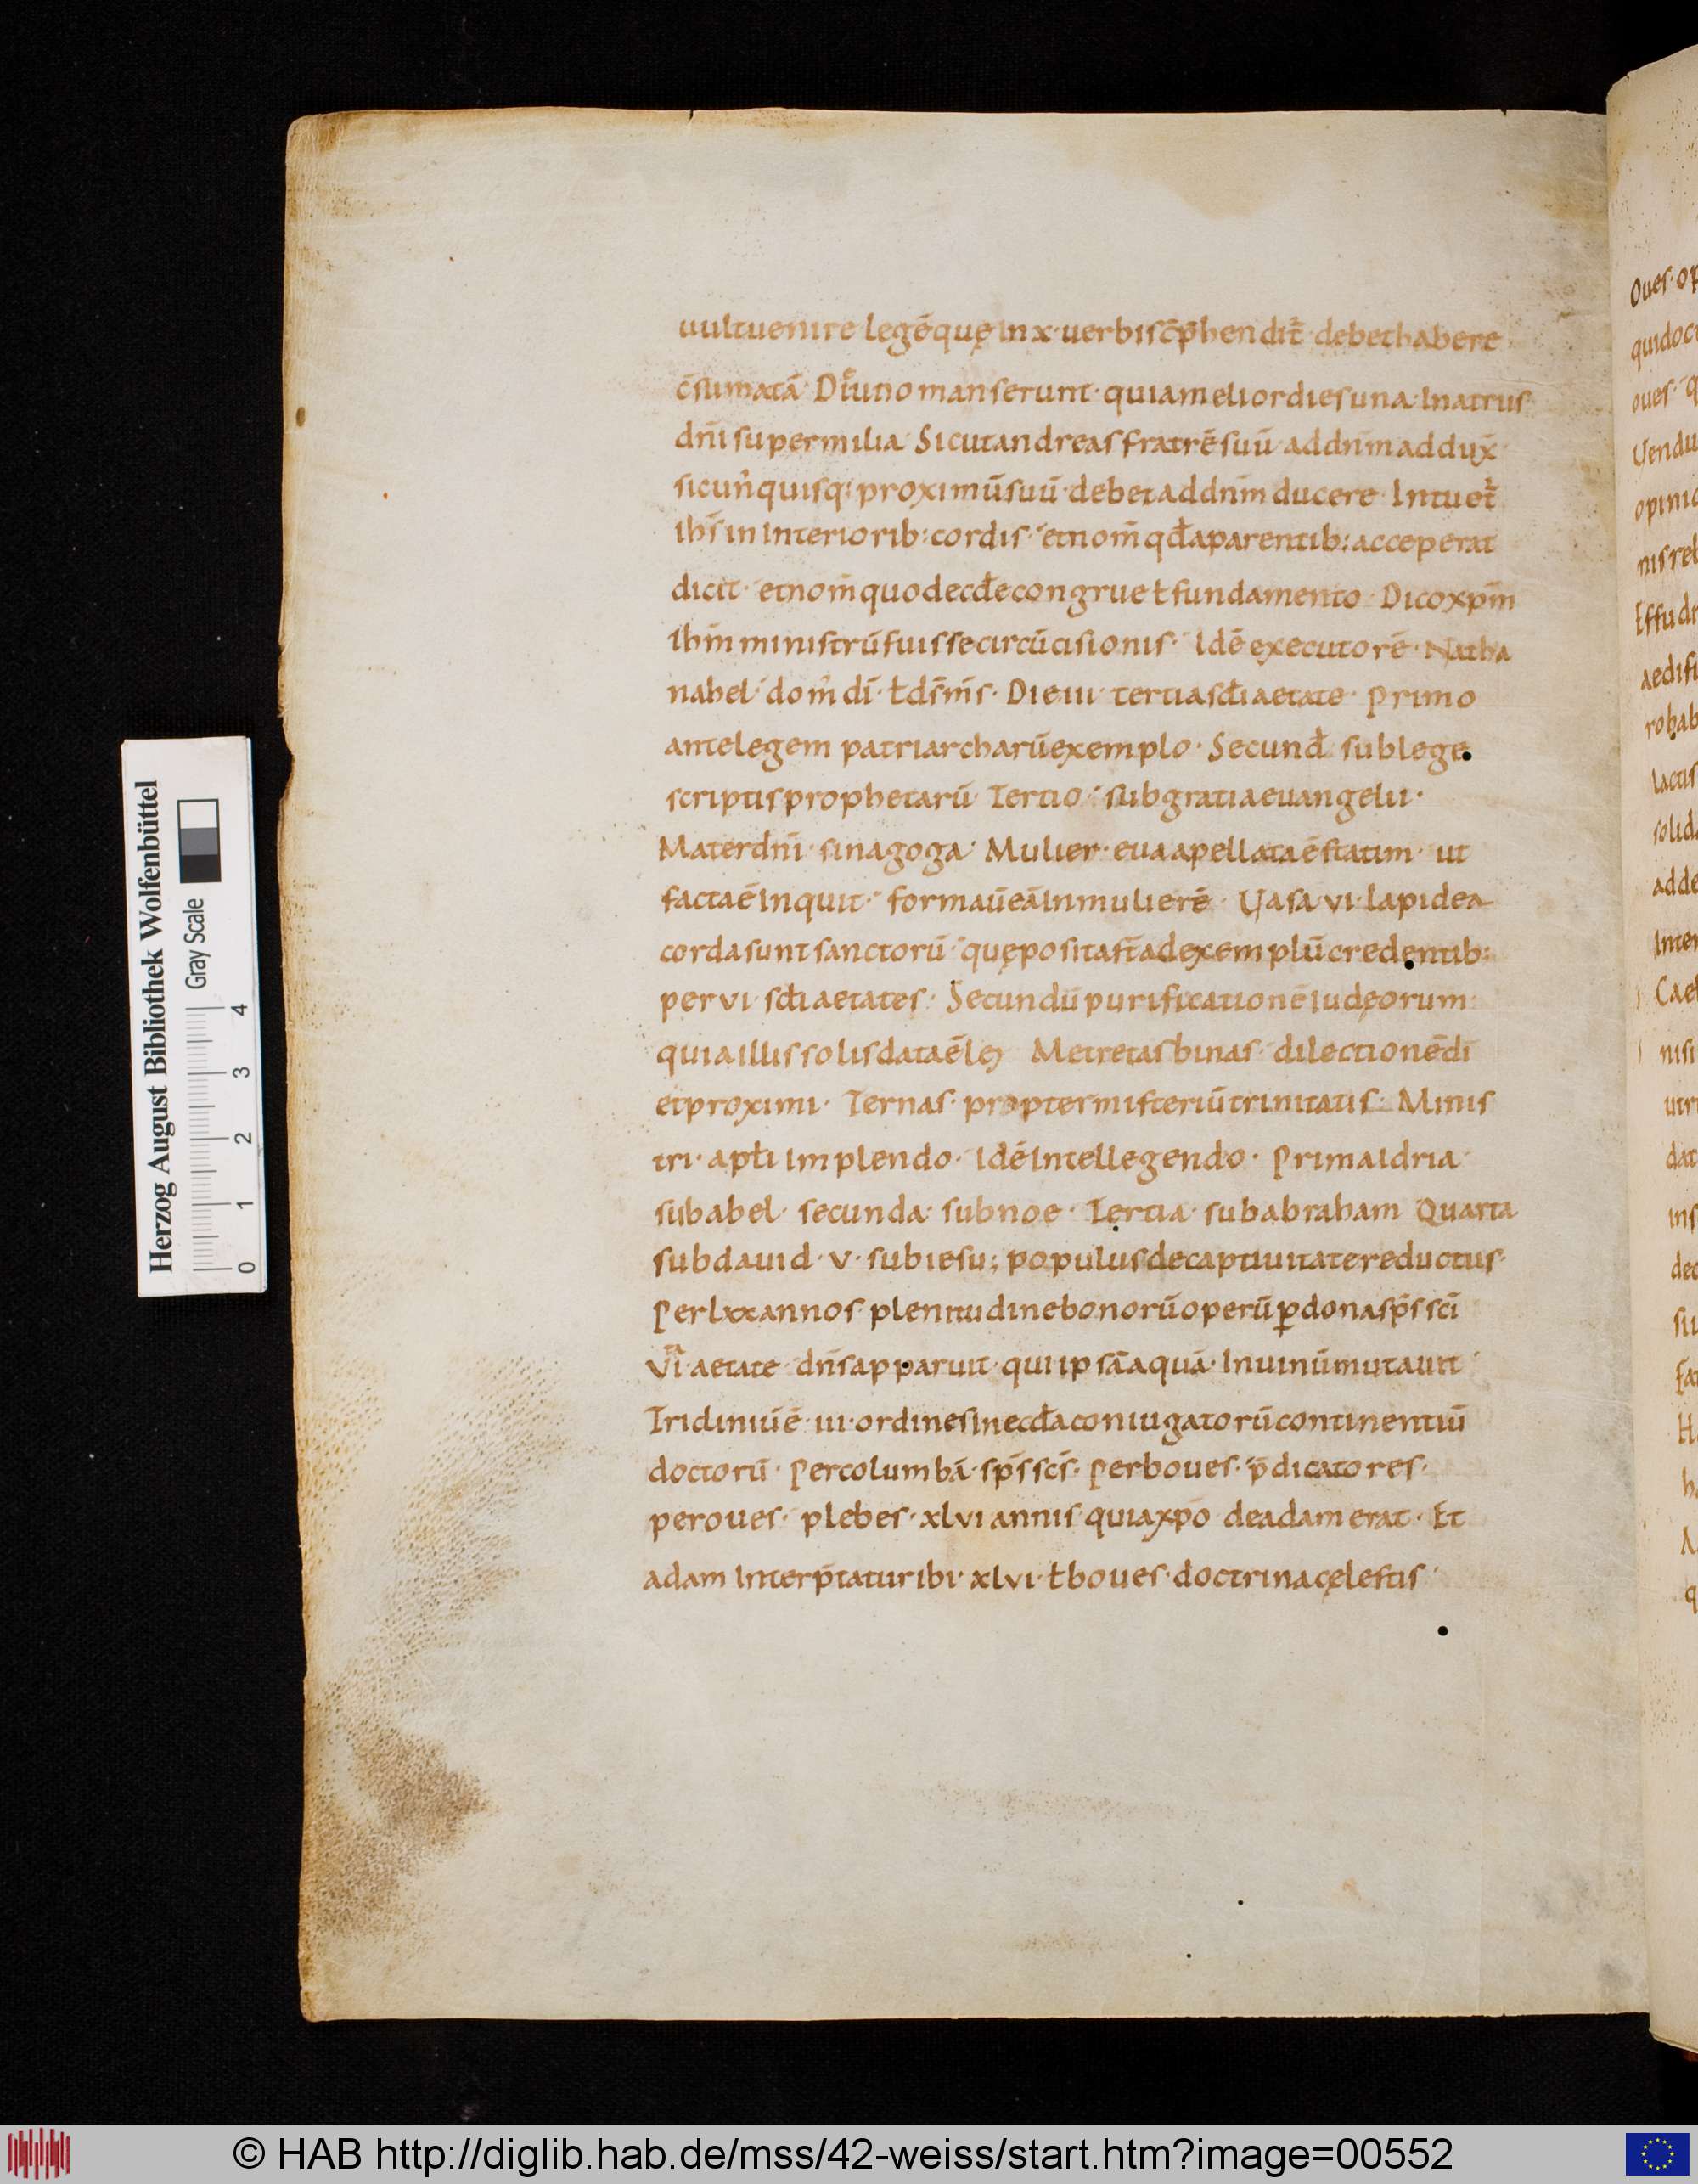 uult uenire legē quę In x uerbis c̄p̄hendit̄ debet habere
c̄sumatā Diē uno manserunt· quia melior dies una· In atrus
dn̄i super milia Sicut andreas fratrē suū ad dn̄m addux̄
sic un̄ quisq; proximū suū debet ad dn̄m ducere Intuet̄
ihs̄ in Interiorib: cordis· et nom̄ qđ a parentib: acceperat
dicit· et nom̄ quod eccłe congruet fundamento Dico xp̄m
ihm̄ ministrū fuisse circūcisionis· Idē executorē· Natha
nahel dom̄ dī· ł ds̄ m̄s· Die iii tertia scłi aetate· Primo
ante legem patriarcharū exemplo· Secunđ sub lege
scriptis prophetarū Tertio sub gratia euangelii·
Mater dn̄i sinagoga· Mulier· eua apellata ē statim· ut
facta ē Inquit· formaū eā In mulierē· Uasa vi lapidea
corda sunt sanctorū quę posita st̄ ad exemplū credentib:
per vi scłi aetates· Secundū purificationē iudęorum
quia illis solis data ē lex Metretas binas· dilectionē dī
et proximi· Ternas· propter misteriū trinitatis· Minis
tri· apłi Implendo· Idē Intellegendo· Prima Idria
sub abel· secunda· sub noe· Tertia· sub abraham Quarta
sub dauid· v· sub iesu; populus de captiuitate reductus·
Per lxx annos· plenitudine bonorū operū ꝑ dona sp̄s sc̄i
vi aetate dn̄s apparuit qui ipsā aquā· In uinū mutauit
Tridiniū ē· iii· ordines In eccła coniugatorū continentiū
doctorū· Per columbā· sp̄s sc̄s· Per boues· p̄dicatores·
per oues· plebes· xlvi annis quia xp̄o de adam erat· Et
adam Interp̄tatur ibi· xlvi· ł boues· doctrina cęlestis
Herzog August Bibliothek Wolfenbüttel
Gray Scale
0 1 2 3 4
© HAB http://diglib.hab.de/mss/42-weiss/start.htm?image=00552